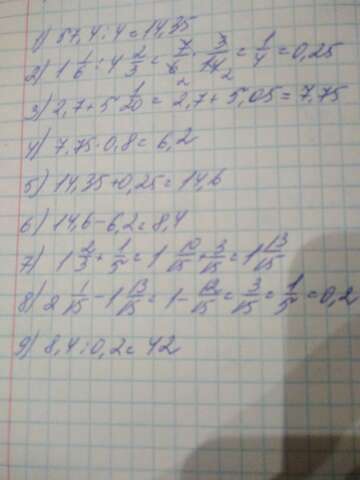 1) 57,4 : 4 = 14,35
2) 1 1/6 : 4 2/3 = 7/6 · 3/14 = 1/4 = 0,25
3) 2,7 + 5 1/20 = 2,7 + 5,05 = 7,75
4) 7,75 · 0,8 = 6,2
5) 14,35 + 0,25 = 14,6
6) 14,6 - 6,2 = 8,4
7) 1 2/3 + 1/5 = 1 10/15 + 3/15 = 1 13/15
8) 2 1/15 - 1 13/15 = 1 - 12/15 = 3/15 = 1/5 = 0,2
9) 8,4 : 0,2 = 42